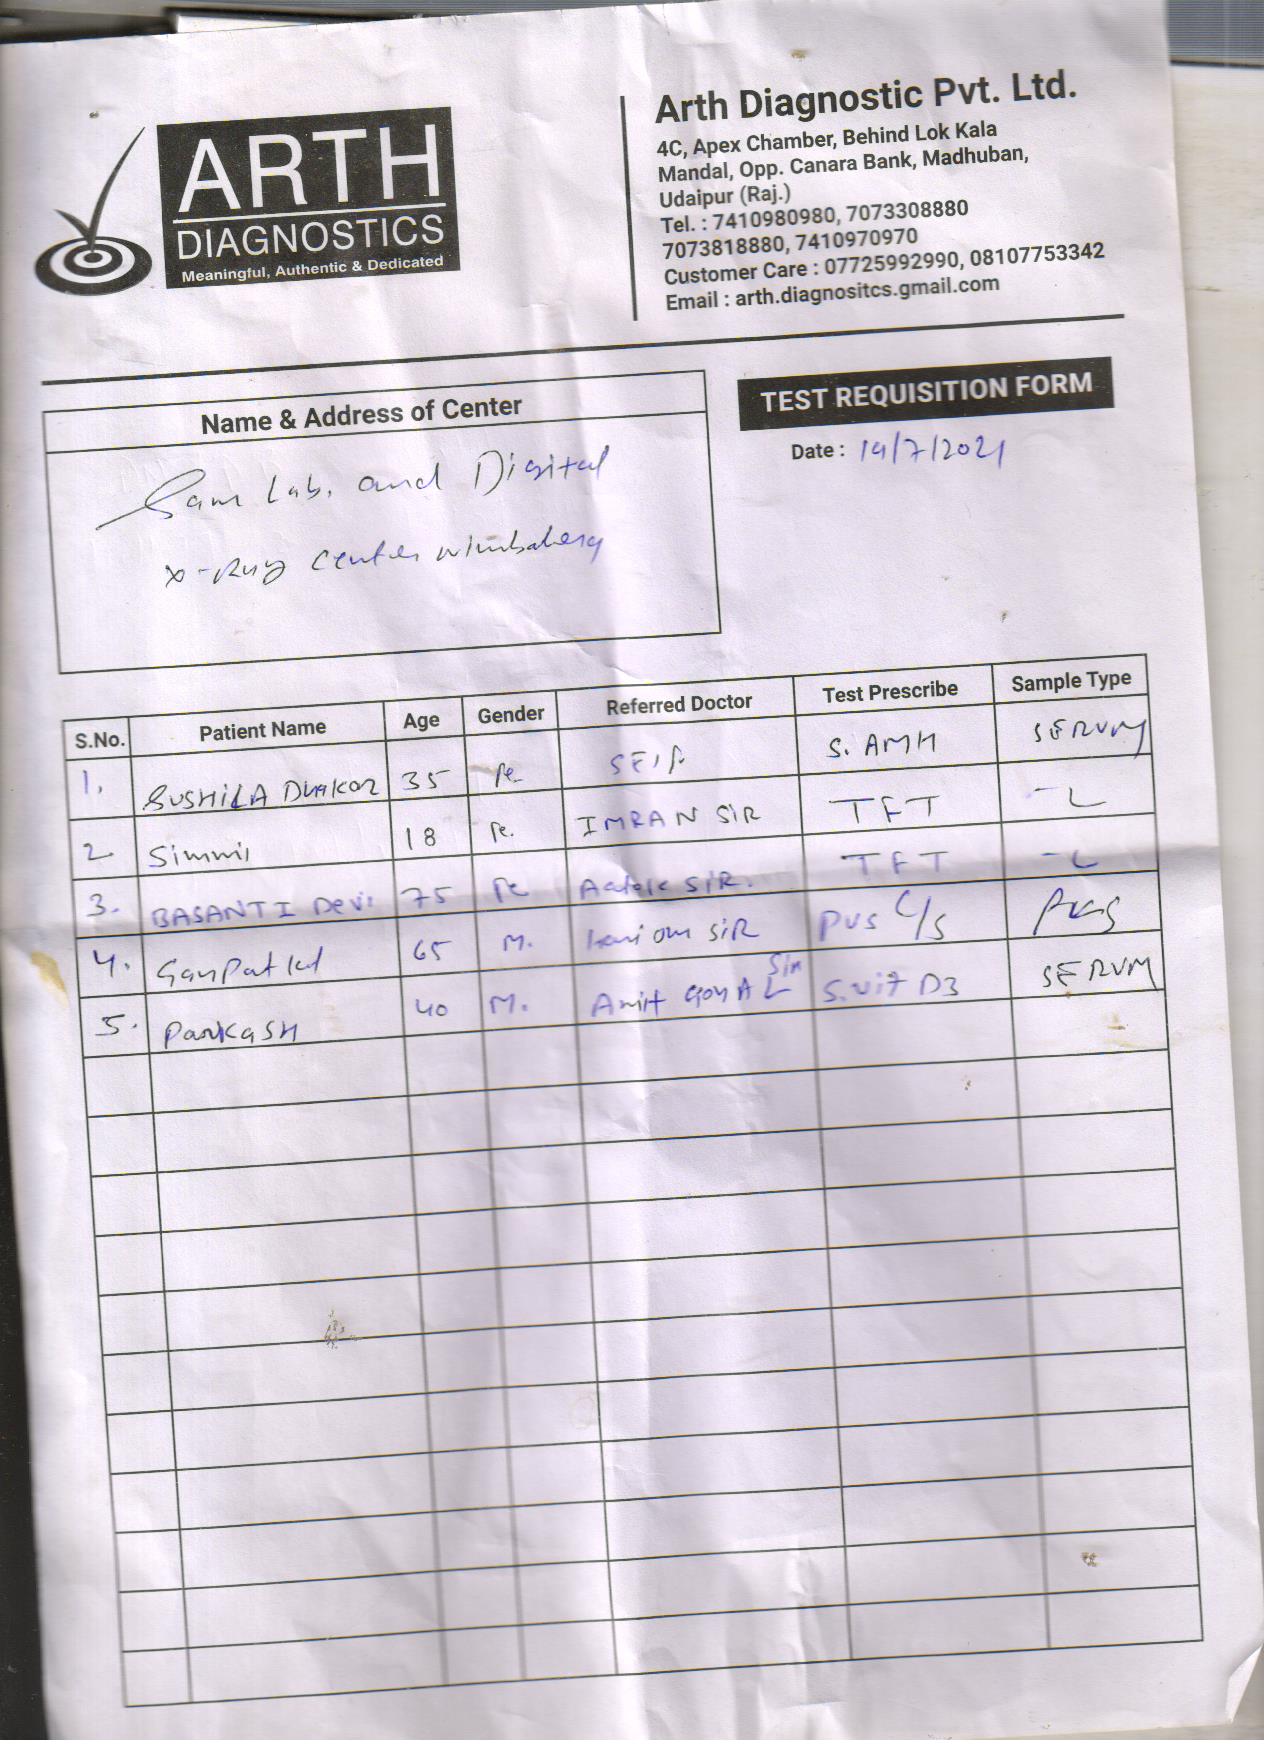 ARTH
DIAGNOSTICS
Meaningful, Authentic & Dedicated
Arth Diagnostic Pvt. Ltd.
4C, Apex Chamber, Behind Lok Kala
Mandal, Opp. Canara Bank, Madhuban,
Udaipur (Raj.)
Tel. : 7410980980, 7073308880
7073818880, 7410970970
Customer Care : 07725992990, 08107753342
Email : arth.diagnositcs.gmail.com
Name & Address of Center
Sam Lab. and Digital
X-Ray Center
TEST REQUISITION FORM
Date : 19/7/2021
S.No. Patient Name Age Gender Referred Doctor Test Prescribe Sample Type
1. SUSHILA 35 Fe. SElf. S. AMH SERUM
2. Simmi 18 Fe. IMRAN SIR TFT
3. BASANTI Devi 75 Fe SIR. TFT
4. 65 M. Hari om SIR Pus C/S Pus
5. Parkash 40 M. Amit GOYAL Sir S.vit D3 SERUM